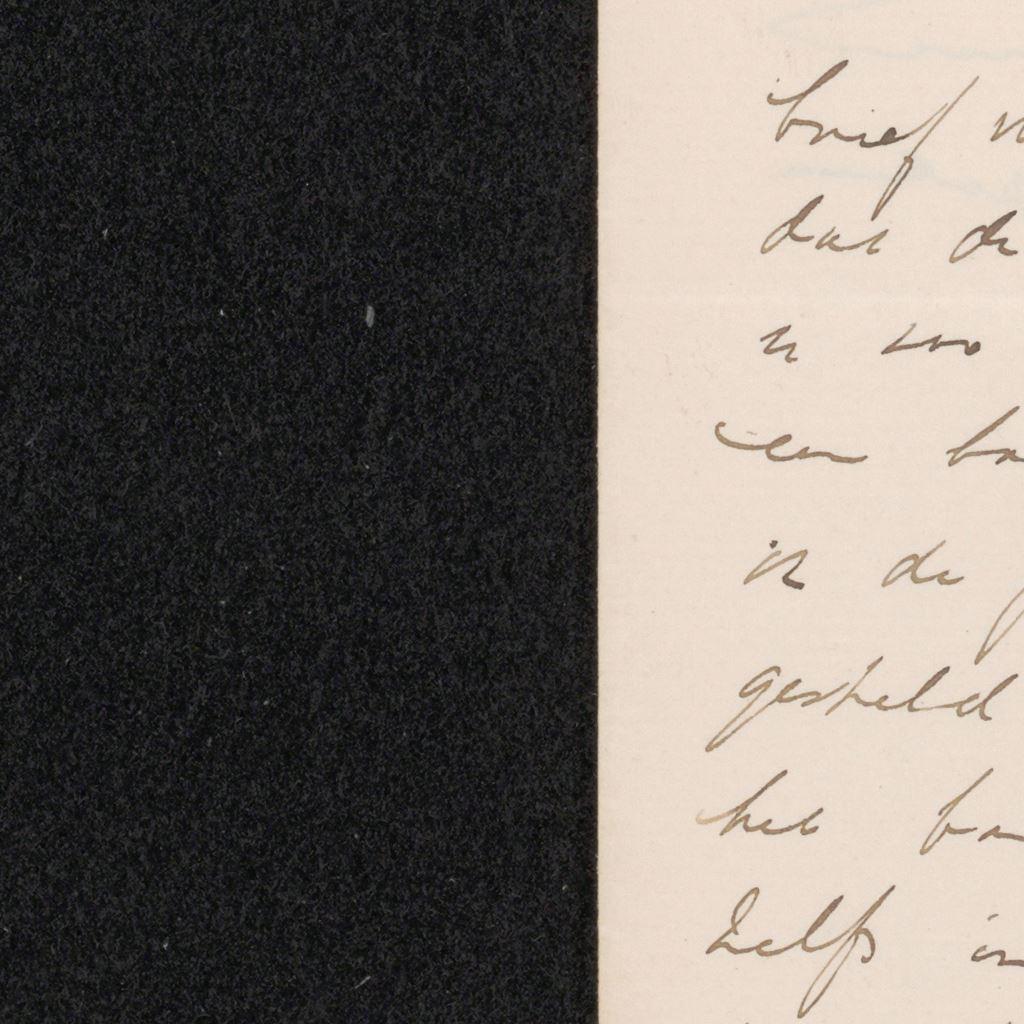 brief
dat de
u voo
een
ik de
gesteld
het
zelfs in